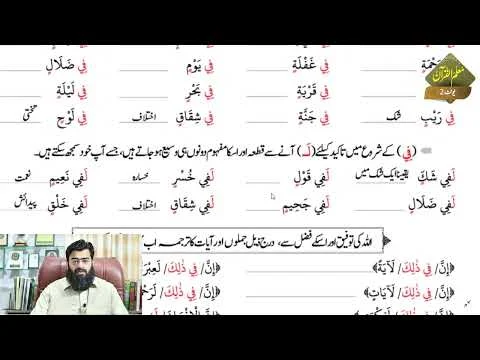 معلم القرآن
یونٹ 2
رَحْمَةٍ فِي غَفْلَةٍ فِي يَوْمِ فِي ضَلَالٍ
فِي قَرْيَةٍ فِي بَحْرٍ فِي لَيْلَةٍ
فِي رَيْبٍ شک فِي جَنَّةٍ فِي شِقَاقٍ اختلاف فِي لَوْحٍ تختی
(فِي) کے شروع میں تاکید کیلئے (لَـ) آنے سے قطعہ اور اسکا مفہوم دونوں ہی وسیع ہو جاتے ہیں، جسے آپ خود سمجھ سکتے ہیں۔
لَفِي شَكٍّ یقیناً ایک شک میں لَفِي قَوْلٍ لَفِي خُسْرٍ خسارہ لَفِي نَعِيمٍ نعمت
لَفِي ضَلَالٍ لَفِي جَحِيمٍ لَفِي شِقَاقٍ اختلاف لَفِي خَلْقٍ پیدائش
اللہ کی توفیق اور اسکے فضل سے، درج ذیل جملوں اور آیات کا ترجمہ اب
﴿إِنَّ/ فِي ذٰلِكَ/ لَآيَةً﴾ ﴿إِنَّ/ فِي ذٰلِكَ/ لَعِبْرَ
﴿إِنَّ/ فِي ذٰلِكَ/ لَآيَاتٍ﴾ ﴿إِنَّ/ فِي ذٰلِكَ/ لَرَحْ